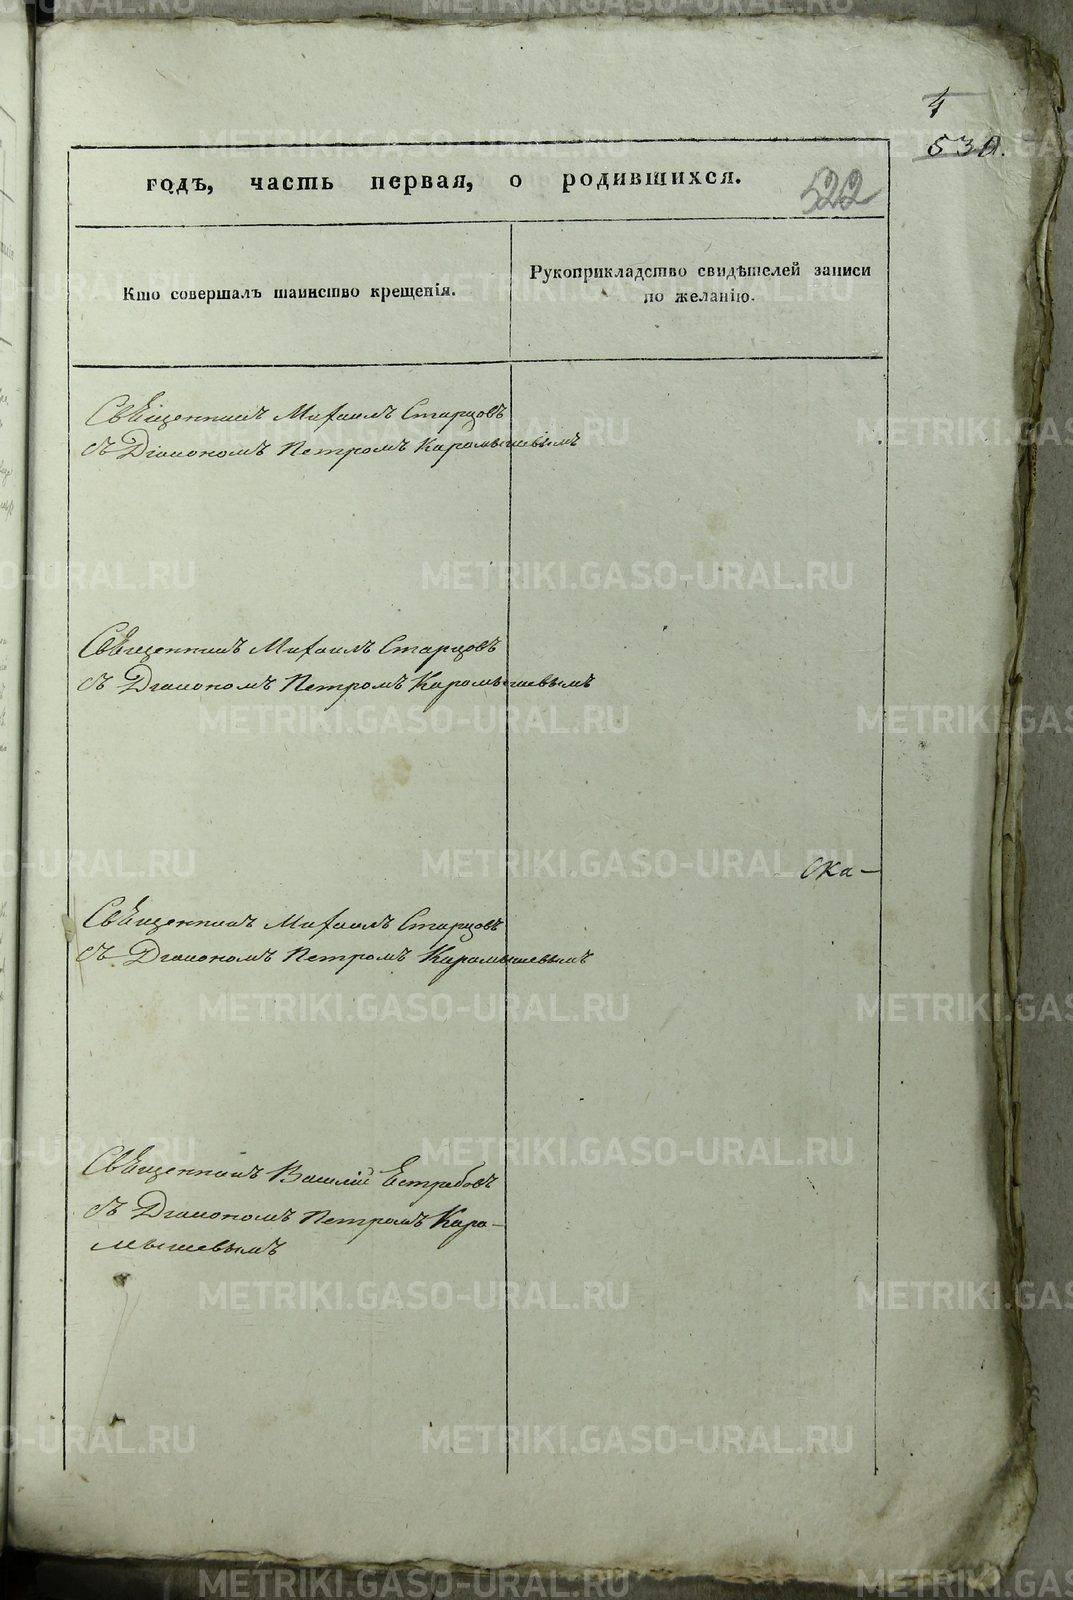 4
530.
годъ, часть первая, о родившихся.
522
Кто совершалъ таинство крещенія.
Рукоприкладство свидѣтелей записи
по желанію.
Священникъ Михаилъ Старцовъ
съ Діакономъ Петромъ Карамышевымъ
Священникъ Михаилъ Старцовъ
съ Діакономъ Петромъ Карамышевымъ
Ска-
Священникъ Михаилъ Старцовъ
съ Діакономъ Петромъ Карамышевымъ
Священникъ Василій Ястребовъ
съ Діакономъ Петромъ Кара-
мышевымъ
METRIKI.GASO-URAL.RU